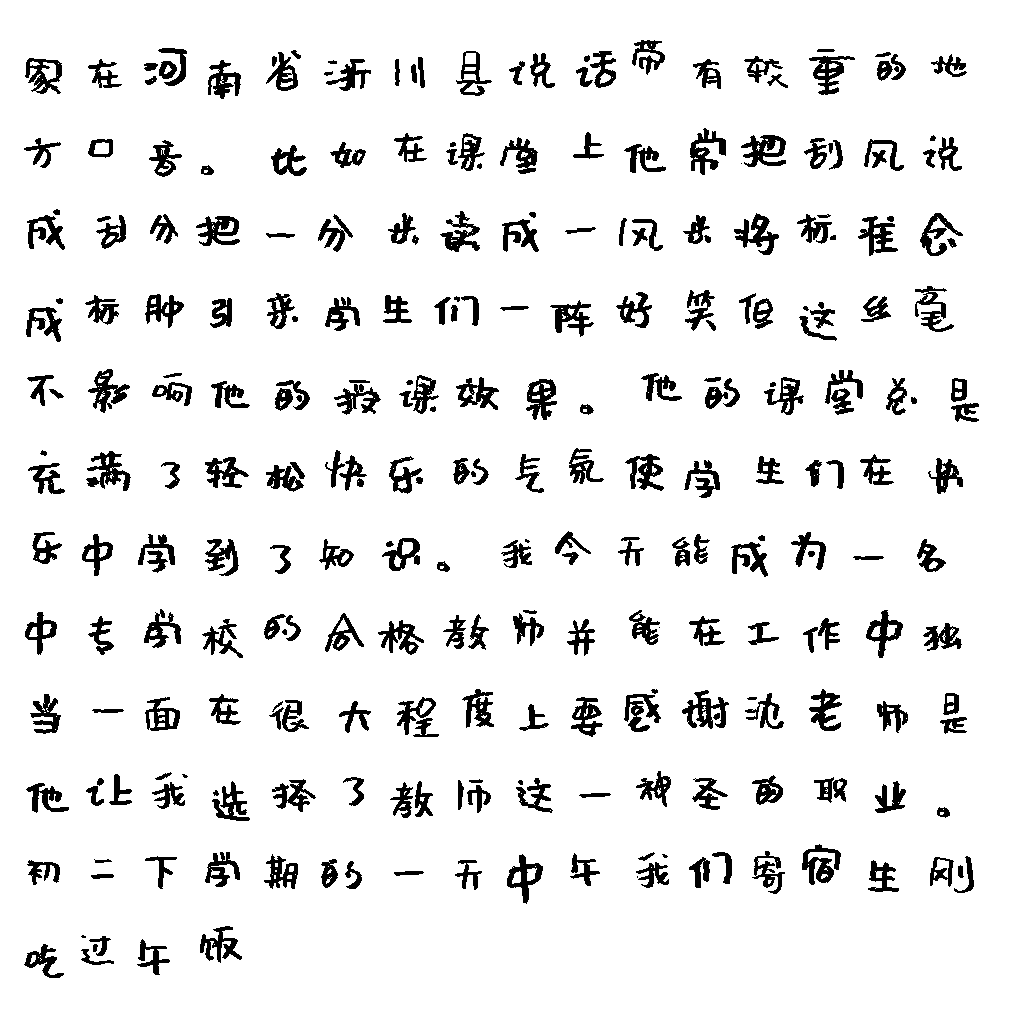 家在河南省淅川县说话带有较重的地
方口音。比如在课堂上他常把刮风说
成刮分把一分米读成一风米将标准念
成标肿引来学生们一阵好笑但这丝毫
不影响他的授课效果。他的课堂总是
充满了轻松快乐的气氛使学生们在快
乐中学到了知识。我今天能成为一名
中专学校的合格教师并能在工作中独
当一面在很大程度上要感谢沈老师是
他让我选择了教师这一神圣的职业。
初二下学期的一天中午我们寄宿生刚
吃过午饭